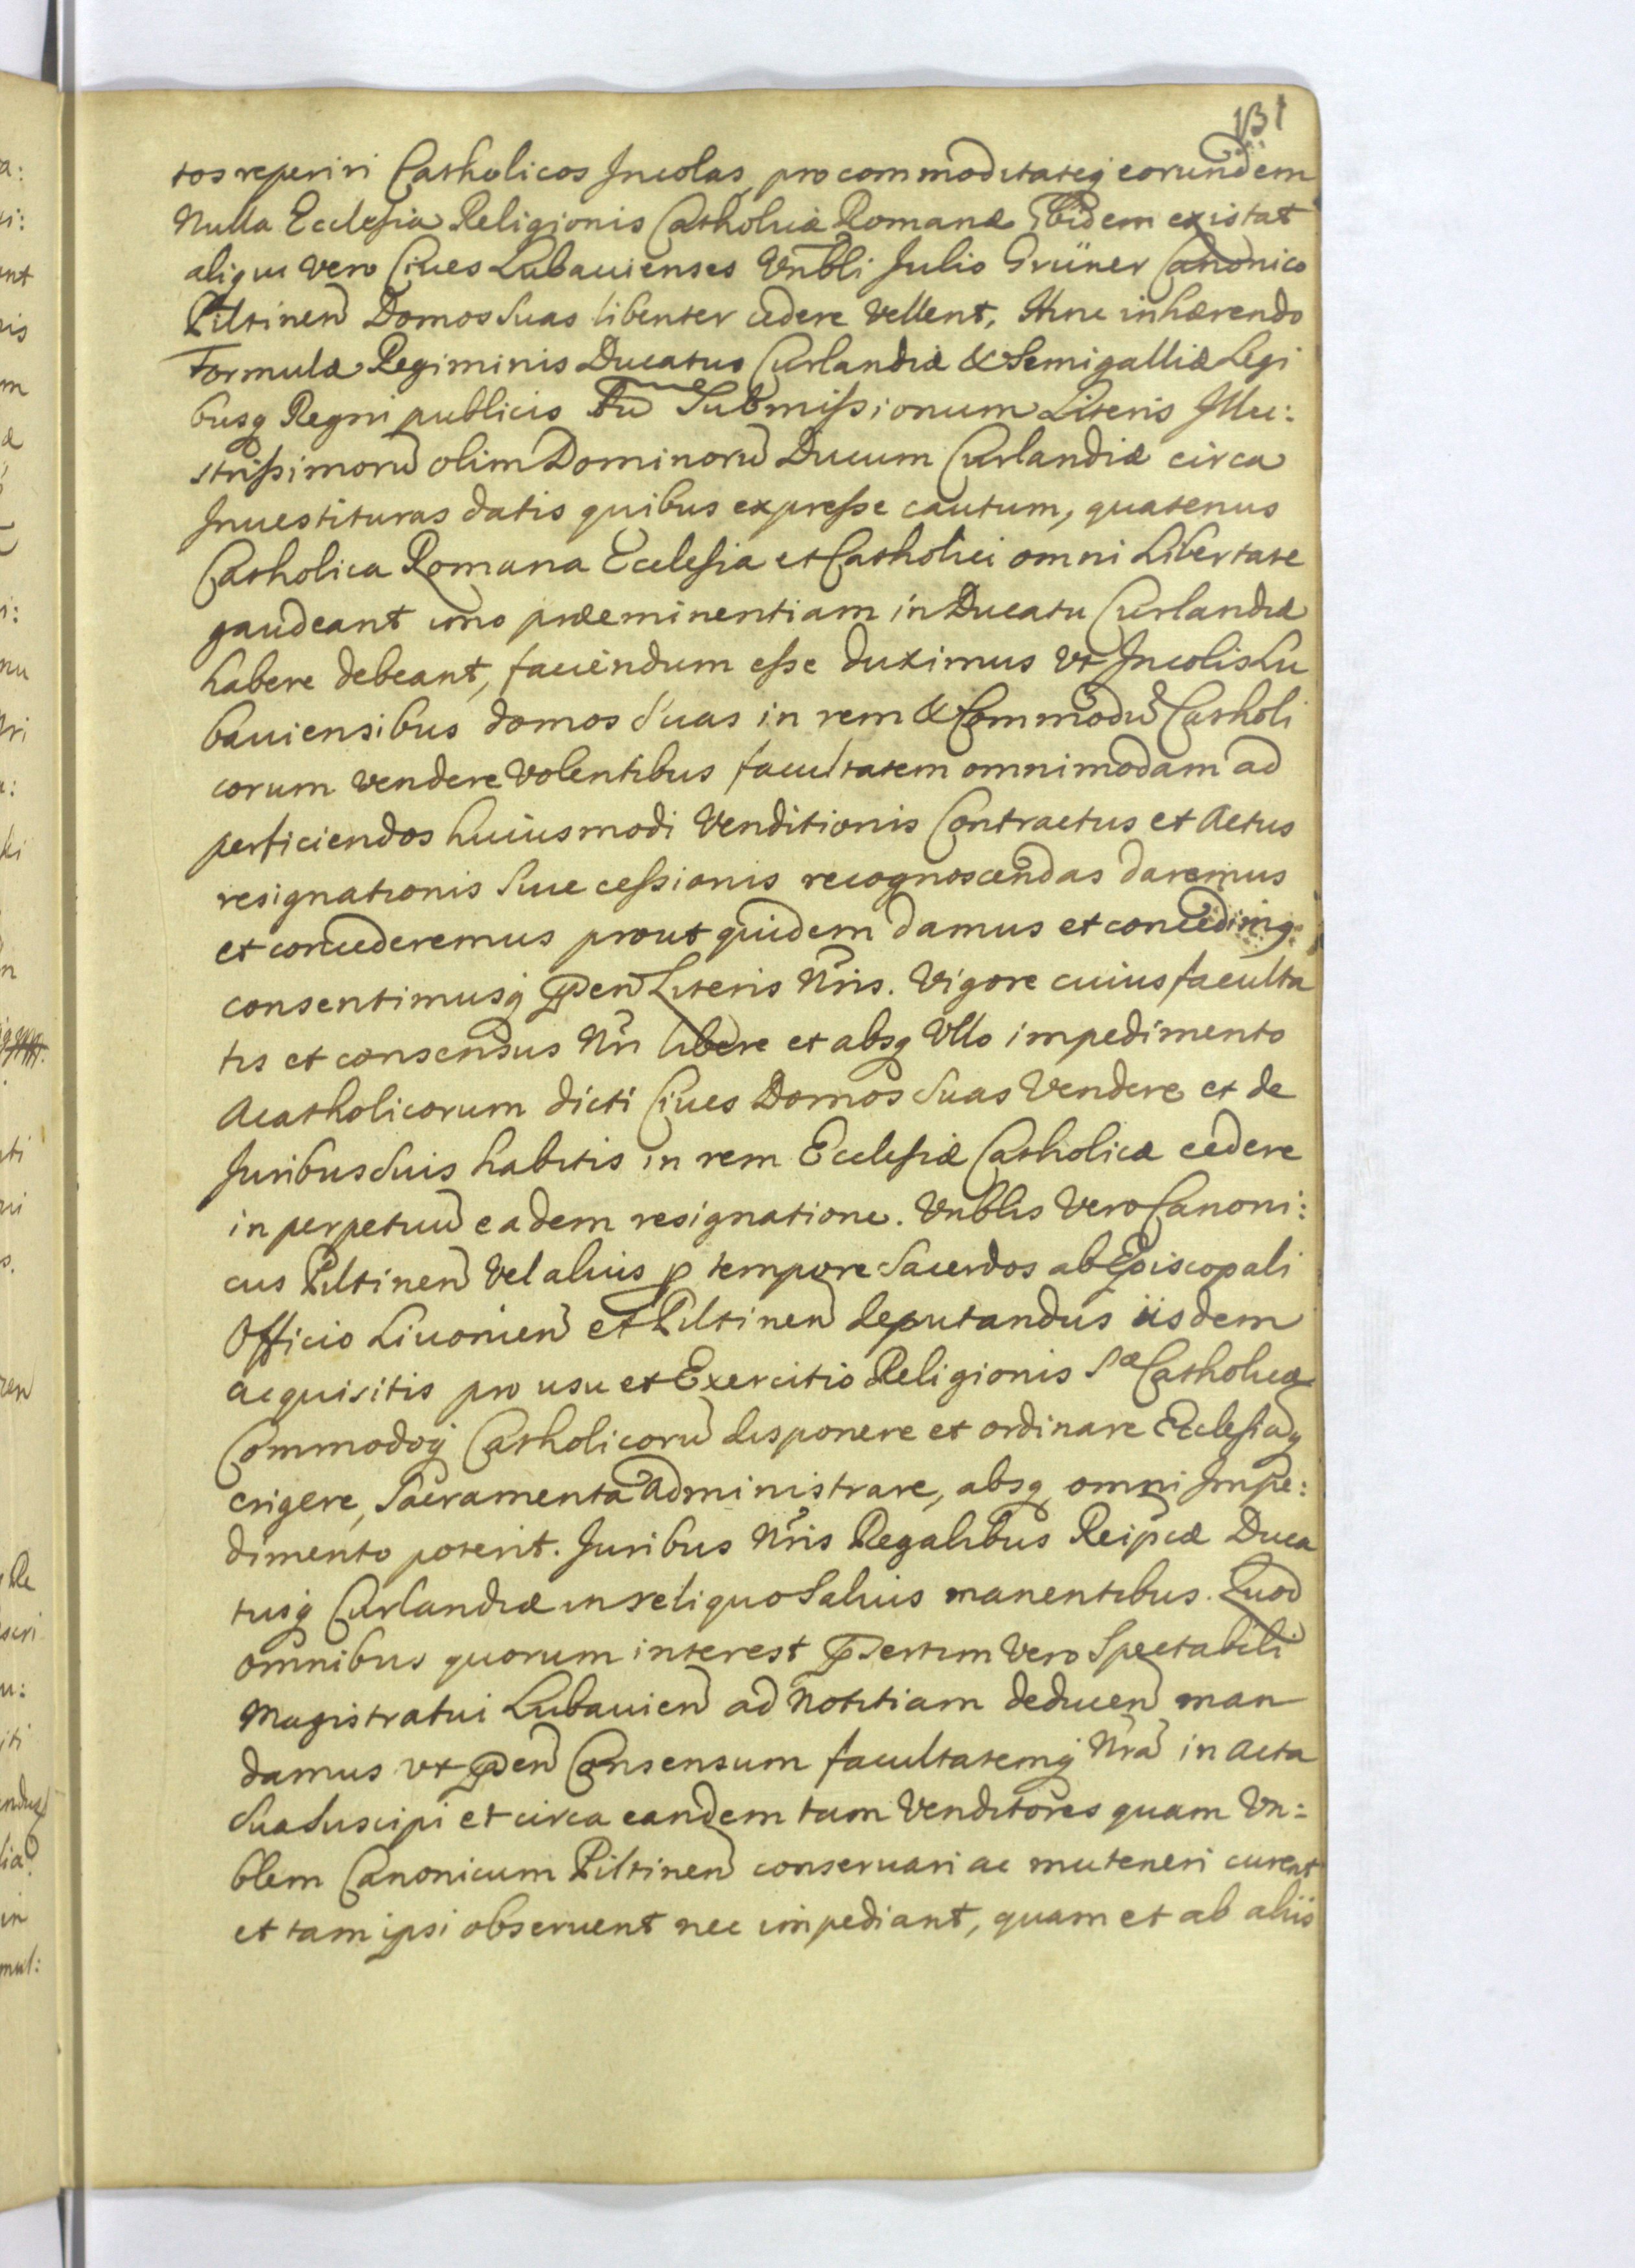 131
tos reperiri Catholicos Incolas, pro commoditateq eorundem
Nulla Ecclesia Religionis Catholicæ Romanæ Ibidem existat
aliqui vero Ciues Lubauienses Vnbli Julio Grüner Canonico
Piltinen Domos Suas libenter cedere vellent, Hinc inhærendo
Formulæ Regiminis Ducatus Curlandiæ & Semigalliæ Legi
busq Regni publicis Tu Submissionum Literis Illu:
strissimorū olim Dominorū Ducum Curlandiæ circa
Inuestituras datis quibus expresse cautum, quatenus
Catholica Romana Ecclesia et Catholici omni Libertate
gaudeant imo præeminentiam in Ducatu Curlandiæ
habere debeant, faciendum esse duximus vt Incolis Lu
bauiensibus domos Suas in rem & Commodū Catholi
corum vendere Volentibus facultatem omnimodam ad
perficiendos huiusmodi Venditionis Contractus et Actus
resignationis Siue cessionis recognoscendas daremus
et concederemus prout quidem damus et concedimq
consentimusq pñen Literis Nris. Vigore cuius faculta
tis et consensus Nri libere et absq Vllo impedimento
Acatholicorum dicti Ciues Domos Suas Vendere et de
Juribus Suis habitis in rem Ecclesiæ Catholicæ cedere
in perpetuū eadem resignatione. Vnblis Vero Canoni:
cus Piltinen Vel alius p tempore Sacerdos ab Episcopali
Officio Liuonien et Piltinen deputandus iisdem
acquisitis pro usu et Exercitio Religionis Sæ Catholicæ
Commodoq Catholicorū disponere et ordinare Ecclesiaq
erigere, Sacramenta administrare, absq omni Impe:
dimento poterit. Juribus Nris Regalibus Reipcæ Duca
tusq Curlandiæ in reliquo Saluis manentibus. Quod
omnibus quorum interest psertim Vero Spectabili
Magistratui Lubauien ad Notitiam deducen man
damus vt pñen Consensum facultatemq Nrã in Acta
Sua Suscipi et circa eandem tam Venditores quam Vn:
blem Canonicum Piltinen conseruari ac muteneri curent
et tam ipsi obseruent nec impediant, quam et ab aliis